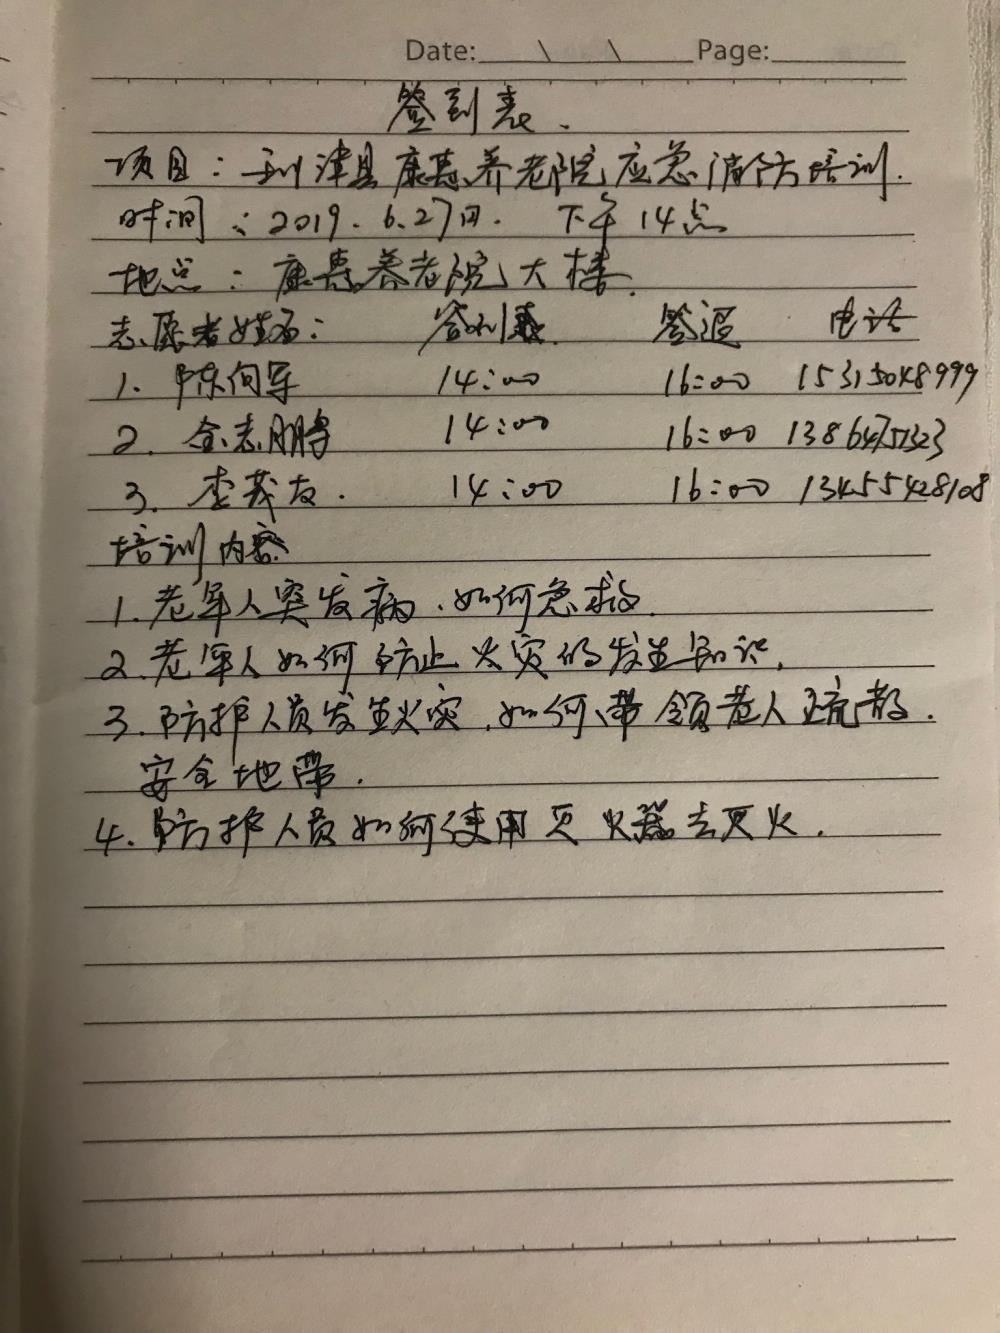 Date:____\____\____Page:________
签到表.
项目：利津县康寿养老院应急消防培训.
时间：2019.6.27日. 下午14点
地点：康寿养老院大楼.
志愿者姓名： 签到表 签退 电话
1. 陈向军 14:00 16:00 15315048999
2. 金志鹏 14:00 16:00 13864751323
3. 李茂友. 14:00 16:00 13455428108
培训内容
1. 老年人突发病、如何急救.
2. 老年人如何防止火灾的发生知识.
3. 防护人员发生火灾、如何带领老人疏散.
安全地带.
4. 防护人员如何使用灭火器去灭火.